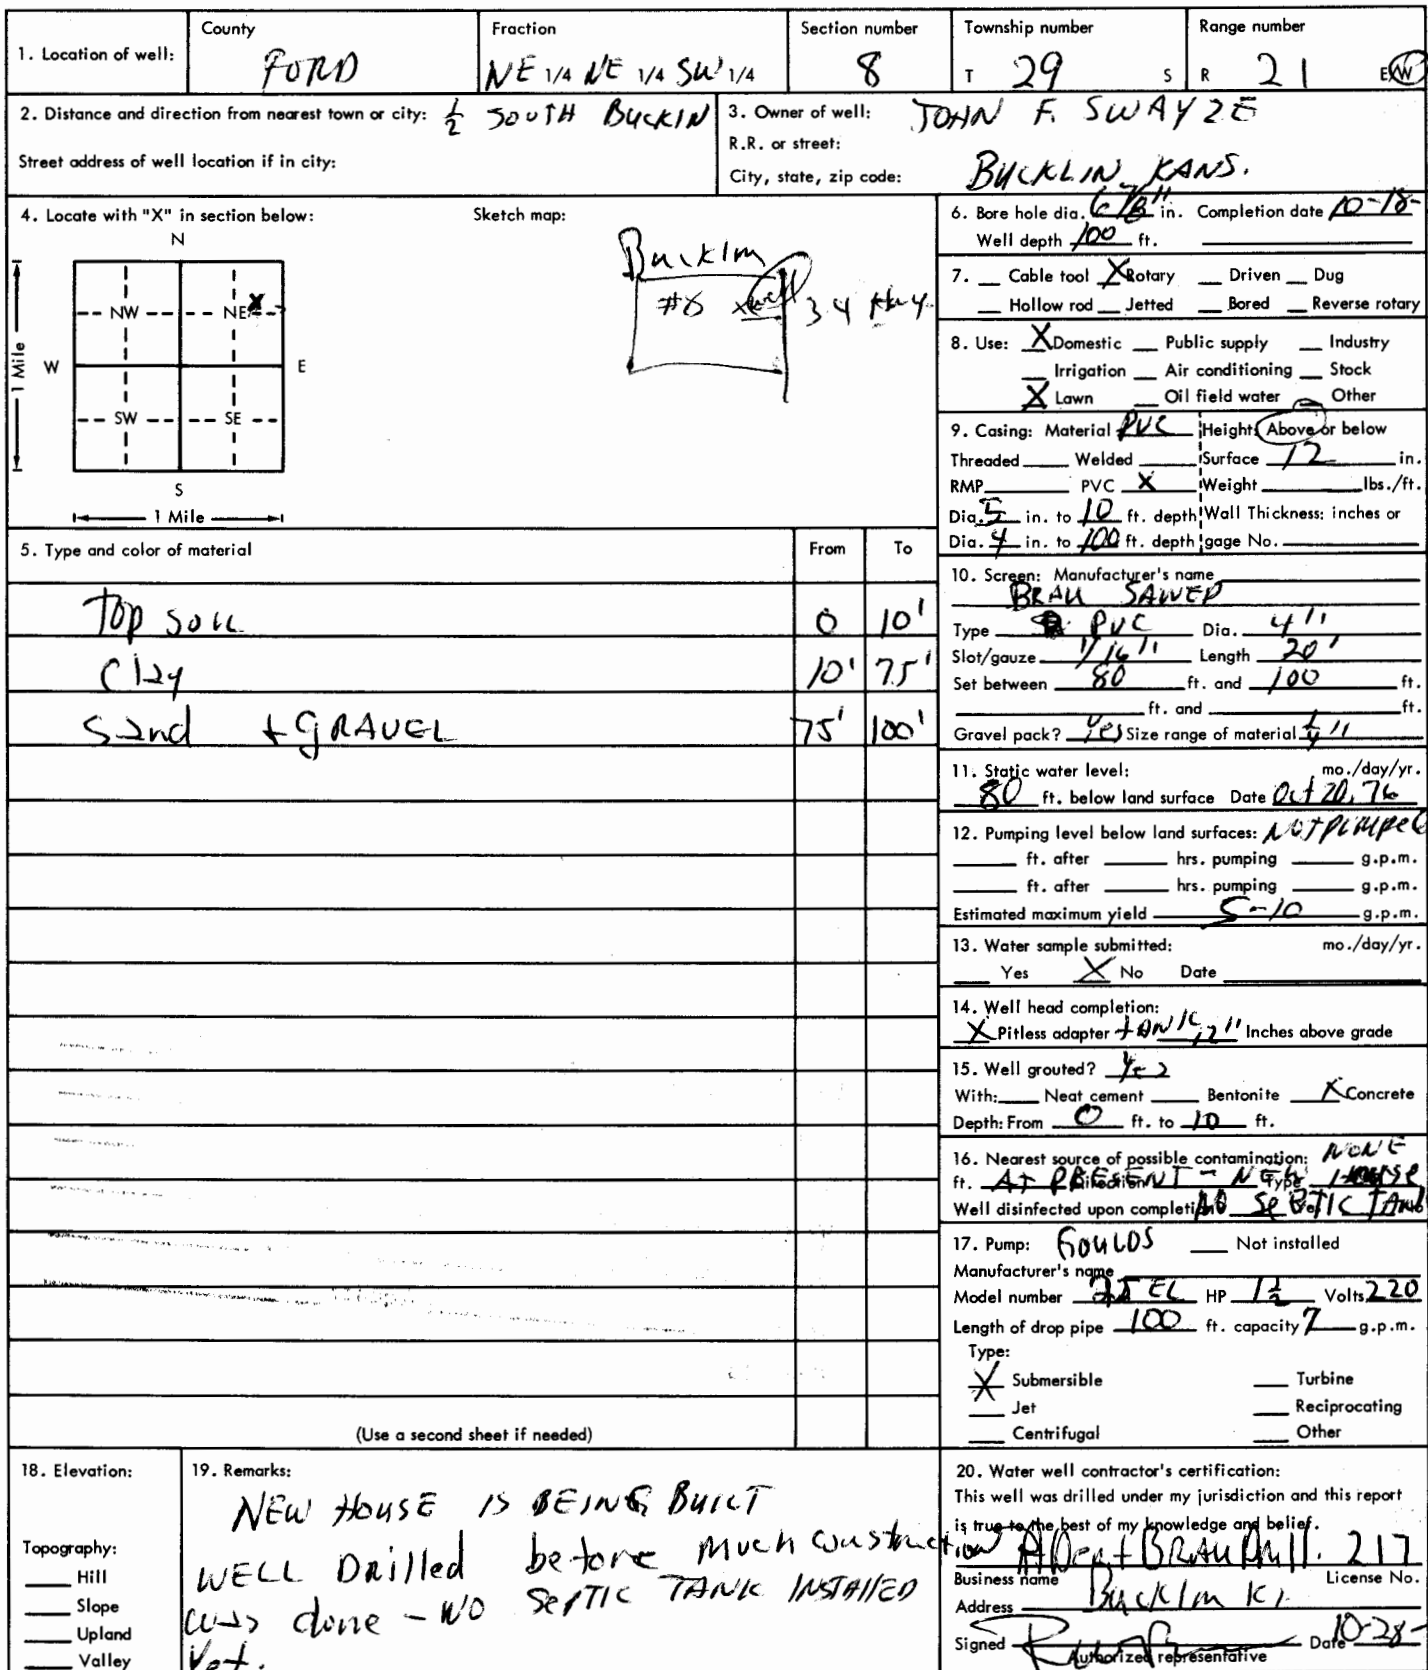 County Fraction Section number Township number Range number
1. Location of well: FORD NE 1/4 NE 1/4 SW 1/4 8 T 29 S R 21 E/W
2. Distance and direction from nearest town or city: 1/2 SOUTH BUCKIN
Street address of well location if in city:
3. Owner of well: JOHN F. SWAYZE
R.R. or street:
City, state, zip code: BUCKLIN, KANS.
4. Locate with "X" in section below:
N
NW X NE
W E
SW SE
S
1 Mile
1 Mile
Sketch map:
Bucklin
#8 x well 34 Hwy
5. Type and color of material From To
Top soil 0 10'
Clay 10' 75'
Sand + GRAVEL 75' 100'
(Use a second sheet if needed)
6. Bore hole dia. in. Completion date 10-18-
Well depth 100 ft.
7. __ Cable tool X Rotary __ Driven __ Dug
__ Hollow rod __ Jetted __ Bored __ Reverse rotary
8. Use: X Domestic __ Public supply __ Industry
__ Irrigation __ Air conditioning __ Stock
X Lawn __ Oil field water __ Other
9. Casing: Material PVC Height: Above or below
Threaded ___ Welded ___ Surface 12 in.
RMP ___ PVC X Weight ___ lbs./ft.
Dia. 5 in. to 10 ft. depth Wall Thickness: inches or
Dia. 4 in. to 100 ft. depth gage No. ___
10. Screen: Manufacturer's name
BRAU SAWED
Type PVC Dia. 4"
Slot/gauze 1/16" Length 20'
Set between 80 ft. and 100 ft.
___ ft. and ___ ft.
Gravel pack? Yes Size range of material 1/4"
11. Static water level: mo./day/yr.
80 ft. below land surface Date Oct 20, 76
12. Pumping level below land surfaces: Not pumped
___ ft. after ___ hrs. pumping ___ g.p.m.
___ ft. after ___ hrs. pumping ___ g.p.m.
Estimated maximum yield 5-10 g.p.m.
13. Water sample submitted: mo./day/yr.
__ Yes X No Date ___
14. Well head completion:
X Pitless adapter tank 12" Inches above grade
15. Well grouted? Yes
With: ___ Neat cement ___ Bentonite X Concrete
Depth: From 0 ft. to 10 ft.
16. Nearest source of possible contamination: NONE
ft. AT PRESENT - NEW Direction Type House
Well disinfected upon completion NO SEPTIC TANK
17. Pump: GOULDS ___ Not installed
Manufacturer's name
Model number EL HP 1 1/2 Volts 220
Length of drop pipe 100 ft. capacity 7 g.p.m.
Type:
X Submersible ___ Turbine
___ Jet ___ Reciprocating
___ Centrifugal ___ Other
18. Elevation:
Topography:
___ Hill
___ Slope
___ Upland
___ Valley
19. Remarks:
NEW HOUSE IS BEING BUILT
WELL Drilled before Much construction
was done - NO SEPTIC TANK INSTALLED
Yet.
20. Water well contractor's certification:
This well was drilled under my jurisdiction and this report
is true to the best of my knowledge and belief.
Albert BRAU Drill. 217
Business name License No.
Address Bucklin Ks.
Signed Date 10-28-
Authorized representative